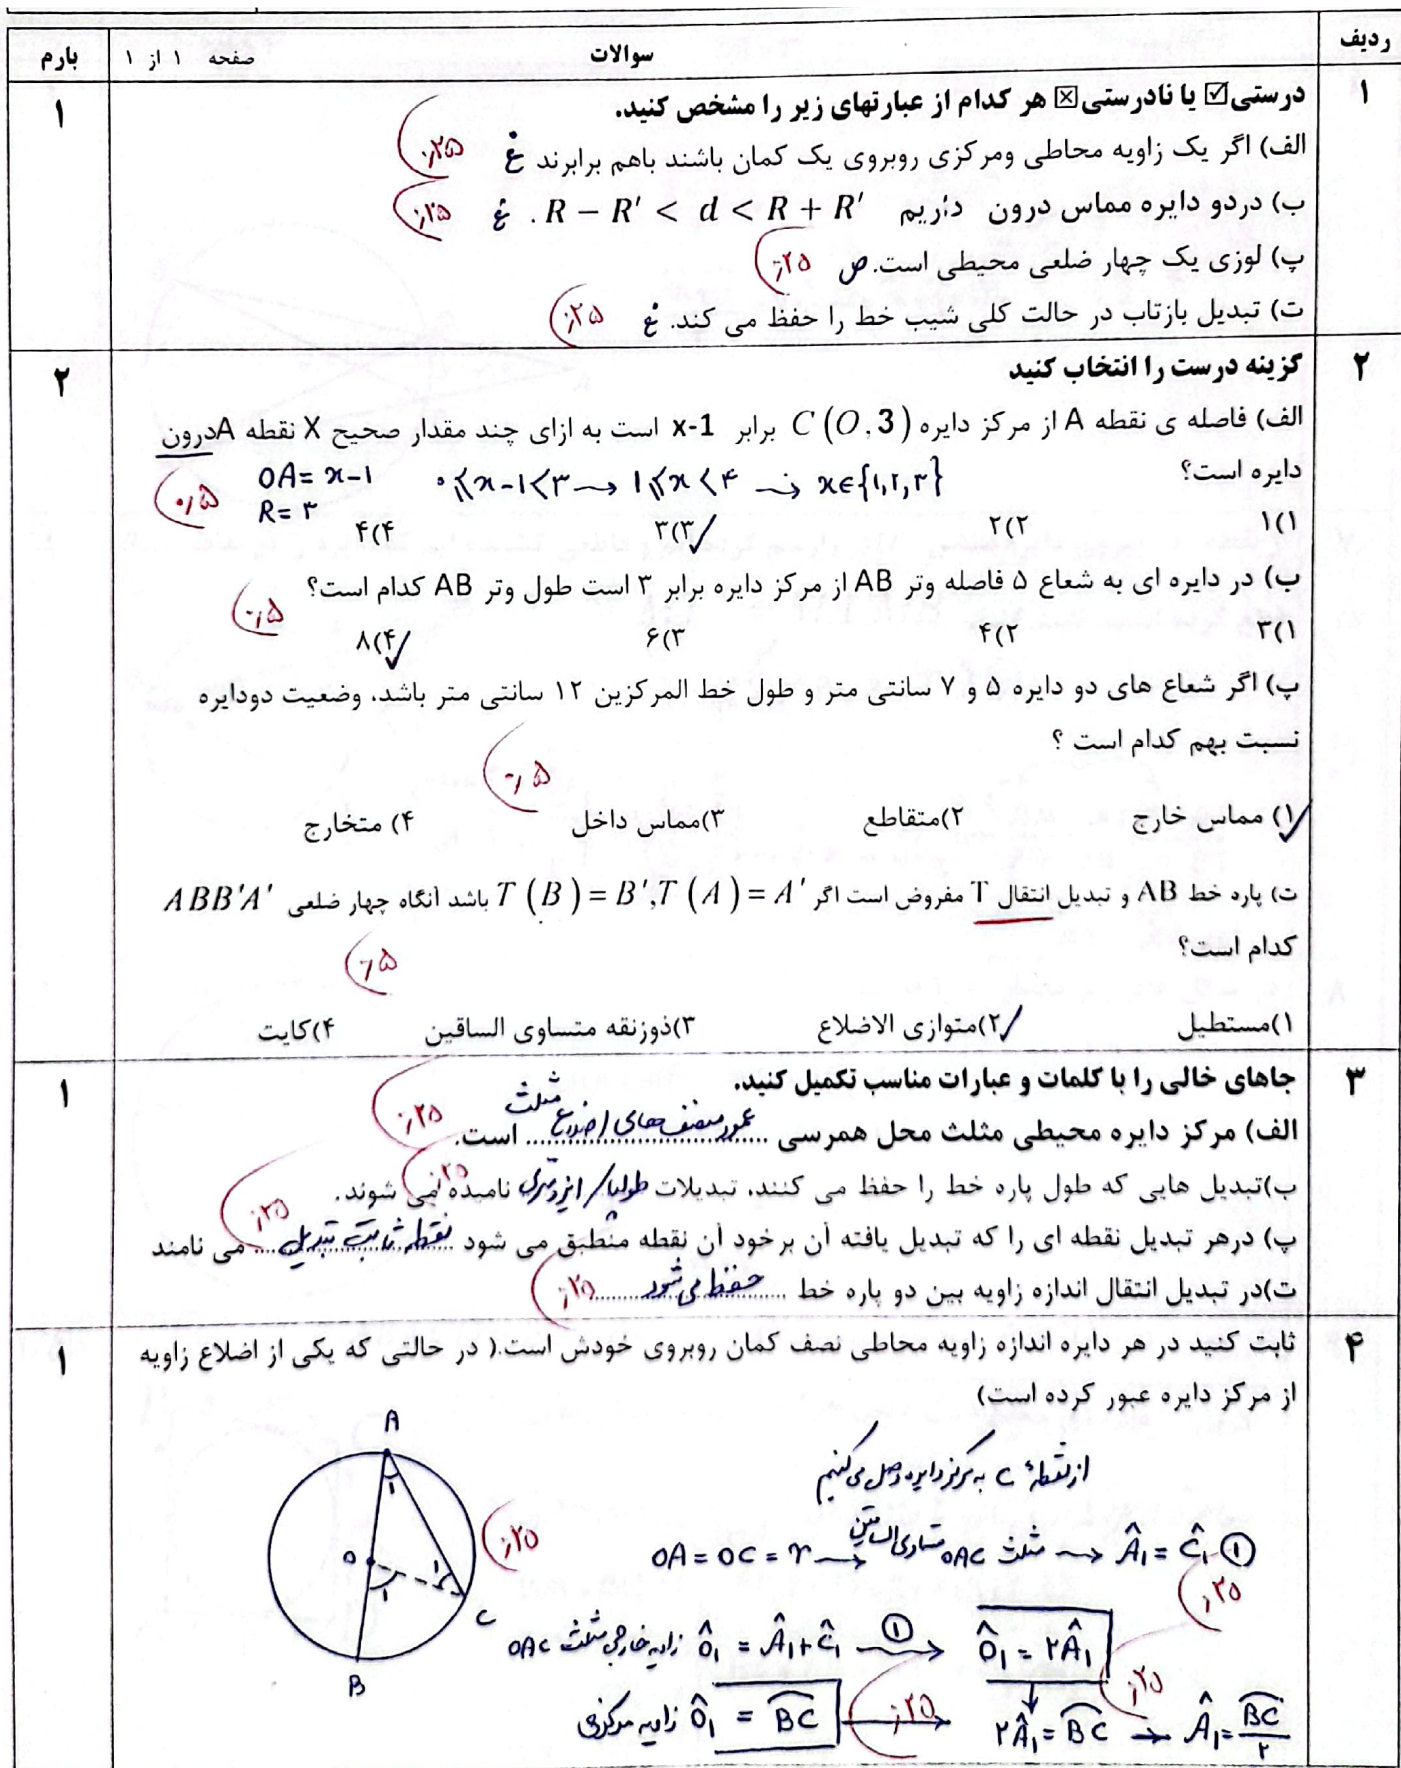 ردیف سوالات صفحه ۱ از ۱ بارم
۱ درستی☑ یا نادرستی☒ هر کدام از عبارتهای زیر را مشخص کنید. ۱
الف) اگر یک زاویه محاطی ومرکزی روبروی یک کمان باشند باهم برابرند غ ۰٫۲۵
ب) دردو دایره مماس درون داریم R − R′ < d < R + R′ . غ ۰٫۲۵
پ) لوزی یک چهار ضلعی محیطی است. ص ۰٫۲۵
ت) تبدیل بازتاب در حالت کلی شیب خط را حفظ می کند. غ ۰٫۲۵
۲ گزینه درست را انتخاب کنید ۲
الف) فاصله ی نقطه A از مرکز دایره C (O,3) برابر x-1 است به ازای چند مقدار صحیح X نقطه A درون
دایره است؟ ۰≤x-۱<۳ → ۱≤x<۴ → x∈{۱,۲,۳} OA= x-۱
R= ۳ ۰٫۵
۱)۱ ۲)۲ ۳)۳ ✓ ۴)۴
ب) در دایره ای به شعاع ۵ فاصله وتر AB از مرکز دایره برابر ۳ است طول وتر AB کدام است؟ ۰٫۵
۱)۳ ۲)۴ ۳)۶ ۴)۸ ✓
پ) اگر شعاع های دو دایره ۵ و ۷ سانتی متر و طول خط المرکزین ۱۲ سانتی متر باشد، وضعیت دودایره
نسبت بهم کدام است ؟ ۰٫۵
۱) مماس خارج ✓ ۲)متقاطع ۳)مماس داخل ۴) متخارج
ت) پاره خط AB و تبدیل انتقال T مفروض است اگر T (B) = B′,T (A) = A′ باشد آنگاه چهار ضلعی ABB′A′
کدام است؟ ۰٫۵
۱)مستطیل ۲)متوازی الاضلاع ✓ ۳)ذوزنقه متساوی الساقین ۴)کایت
۳ جاهای خالی را با کلمات و عبارات مناسب تکمیل کنید. ۱
الف) مرکز دایره محیطی مثلث محل همرسی عمودمنصف های اضلاع مثلث است. ۰٫۲۵
ب)تبدیل هایی که طول پاره خط را حفظ می کنند، تبدیلات طولپا/ ایزومتری نامیده می شوند. ۰٫۲۵
پ) درهر تبدیل نقطه ای را که تبدیل یافته آن برخود آن نقطه منطبق می شود نقطه ثابت تبدیل می نامند ۰٫۲۵
ت)در تبدیل انتقال اندازه زاویه بین دو پاره خط حفظ می شود ۰٫۲۵
۴ ثابت کنید در هر دایره اندازه زاویه محاطی نصف کمان روبروی خودش است.( در حالتی که یکی از اضلاع زاویه ۱
از مرکز دایره عبور کرده است)
A
از نقطهٔ C به مرکز دایره وصل می کنیم
OA = OC = r → مثلث OAC متساوی الساقین → Â₁ = Ĉ₁ ① ۰٫۲۵
۰٫۲۵
O ۱ ۱ ۱ C B
زاویه خارجی مثلث OAC Ô₁ = Â₁+Ĉ₁ ①→ Ô₁ = ۲Â₁ ۰٫۲۵
زاویه مرکزی Ô₁ = BC → ۲Â₁ = BC → Â₁ = BC/۲ ۰٫۲۵